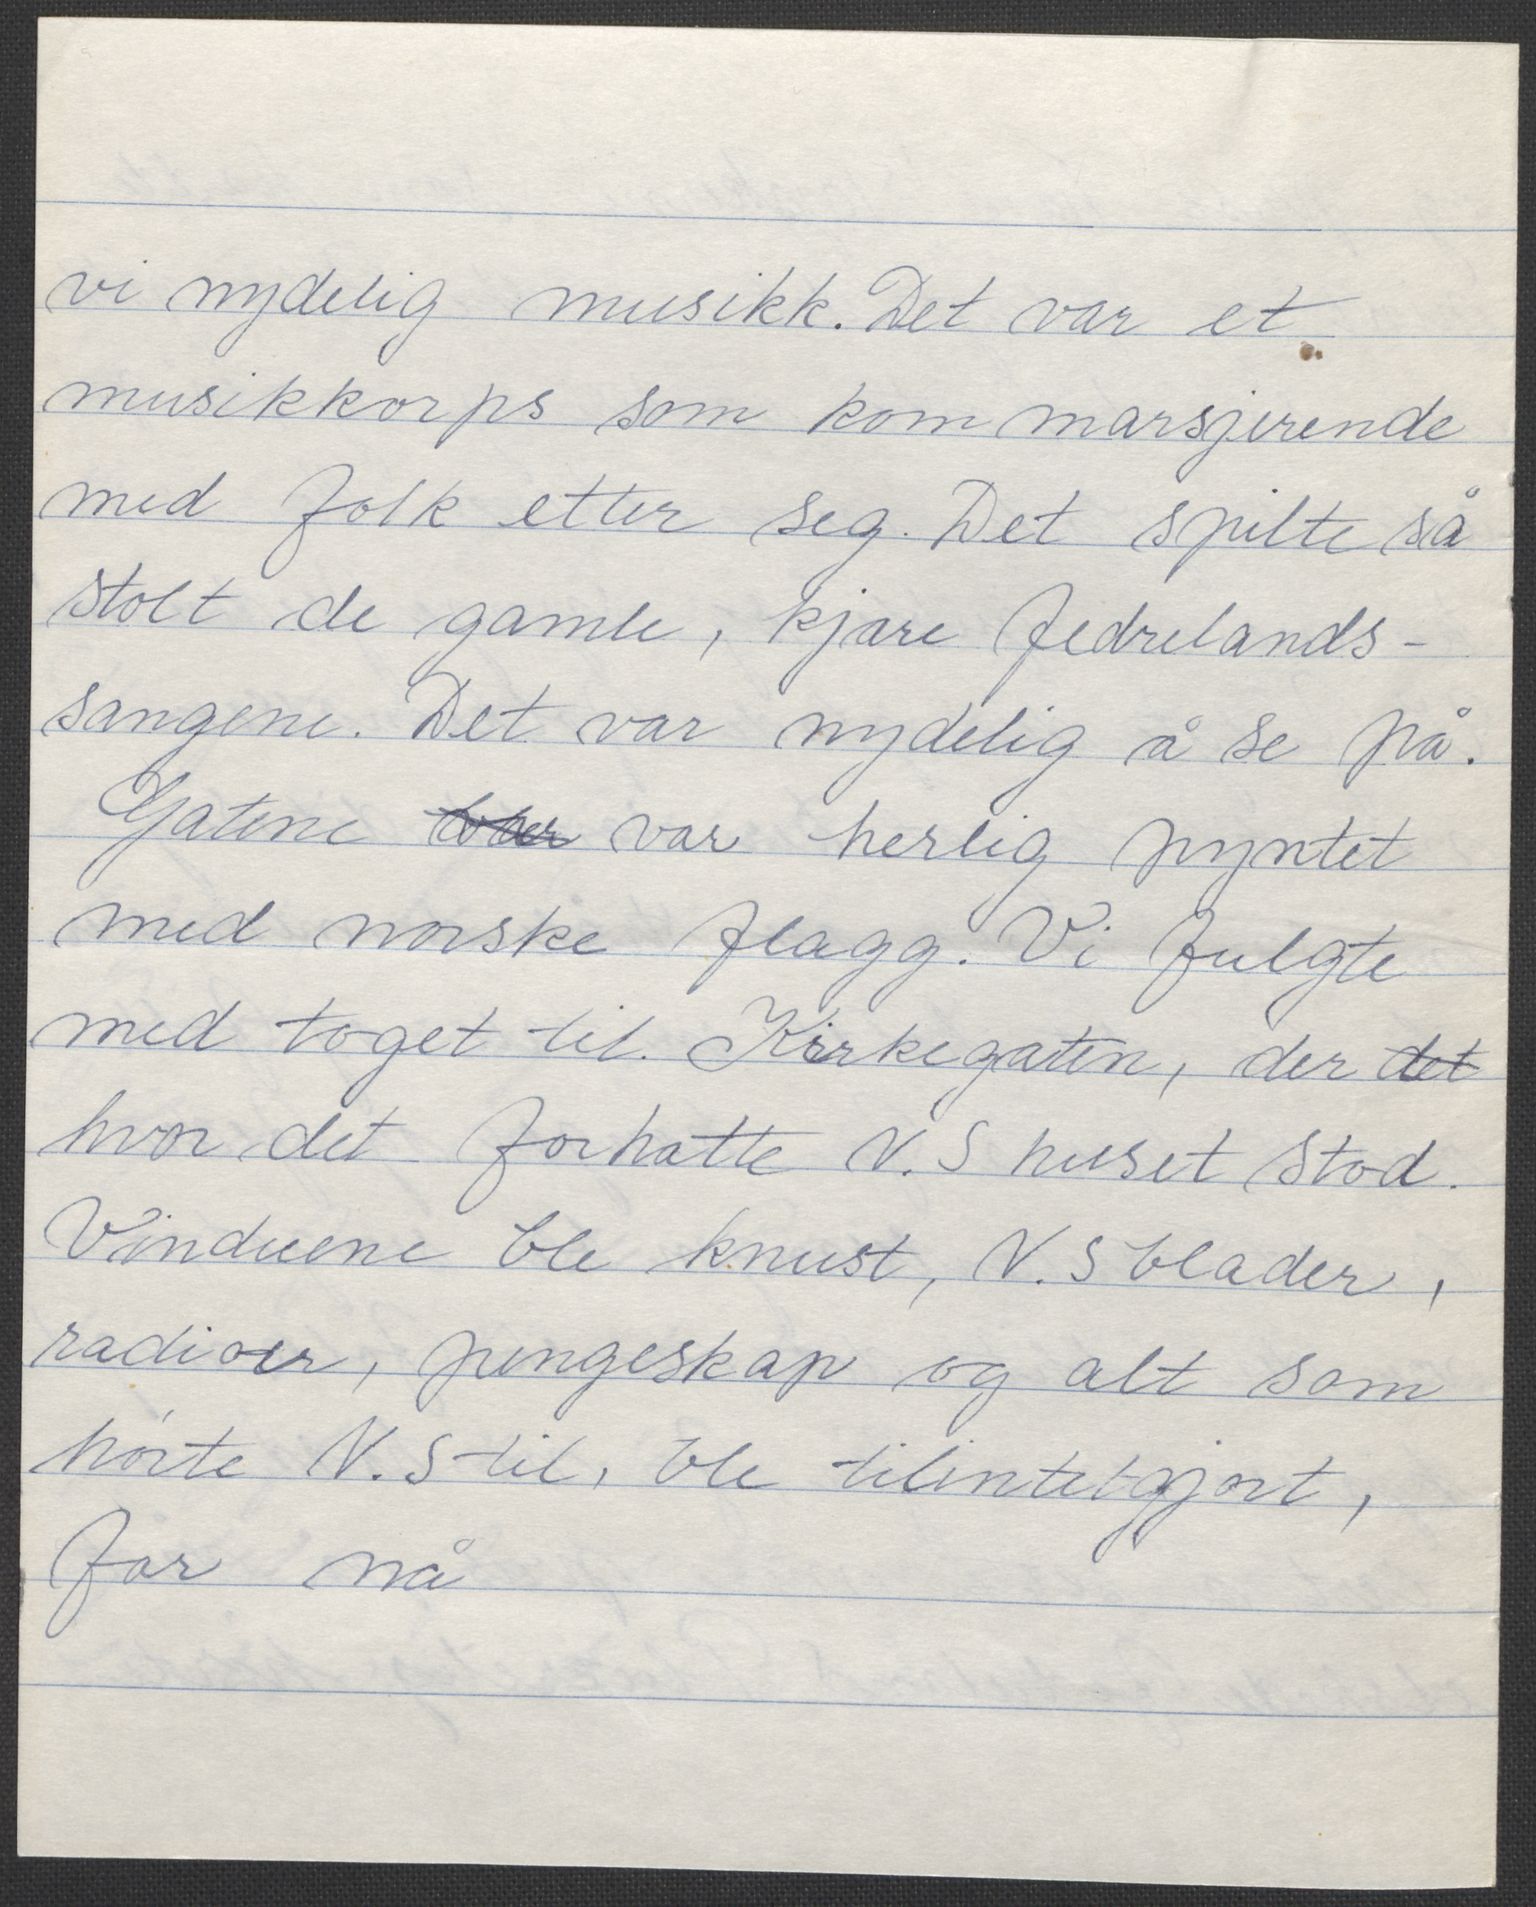 vi nydelig musikk. Det var et
musikkorps som kom marsjerende
med folk etter seg. Det spilte så
stolt de gamle, kjære fedrelands-
sangene. Det var nydelig å se på.
Gatene var herlig pyntet
med norske flagg. Vi fulgte
med toget til Kirkegaten, der det
hvor det forhatte N.S huset stod.
Vinduene ble knust, N.S blader,
radioer, pengeskap og alt som
hørte N.S til, ble tilintetgjort,
for nå